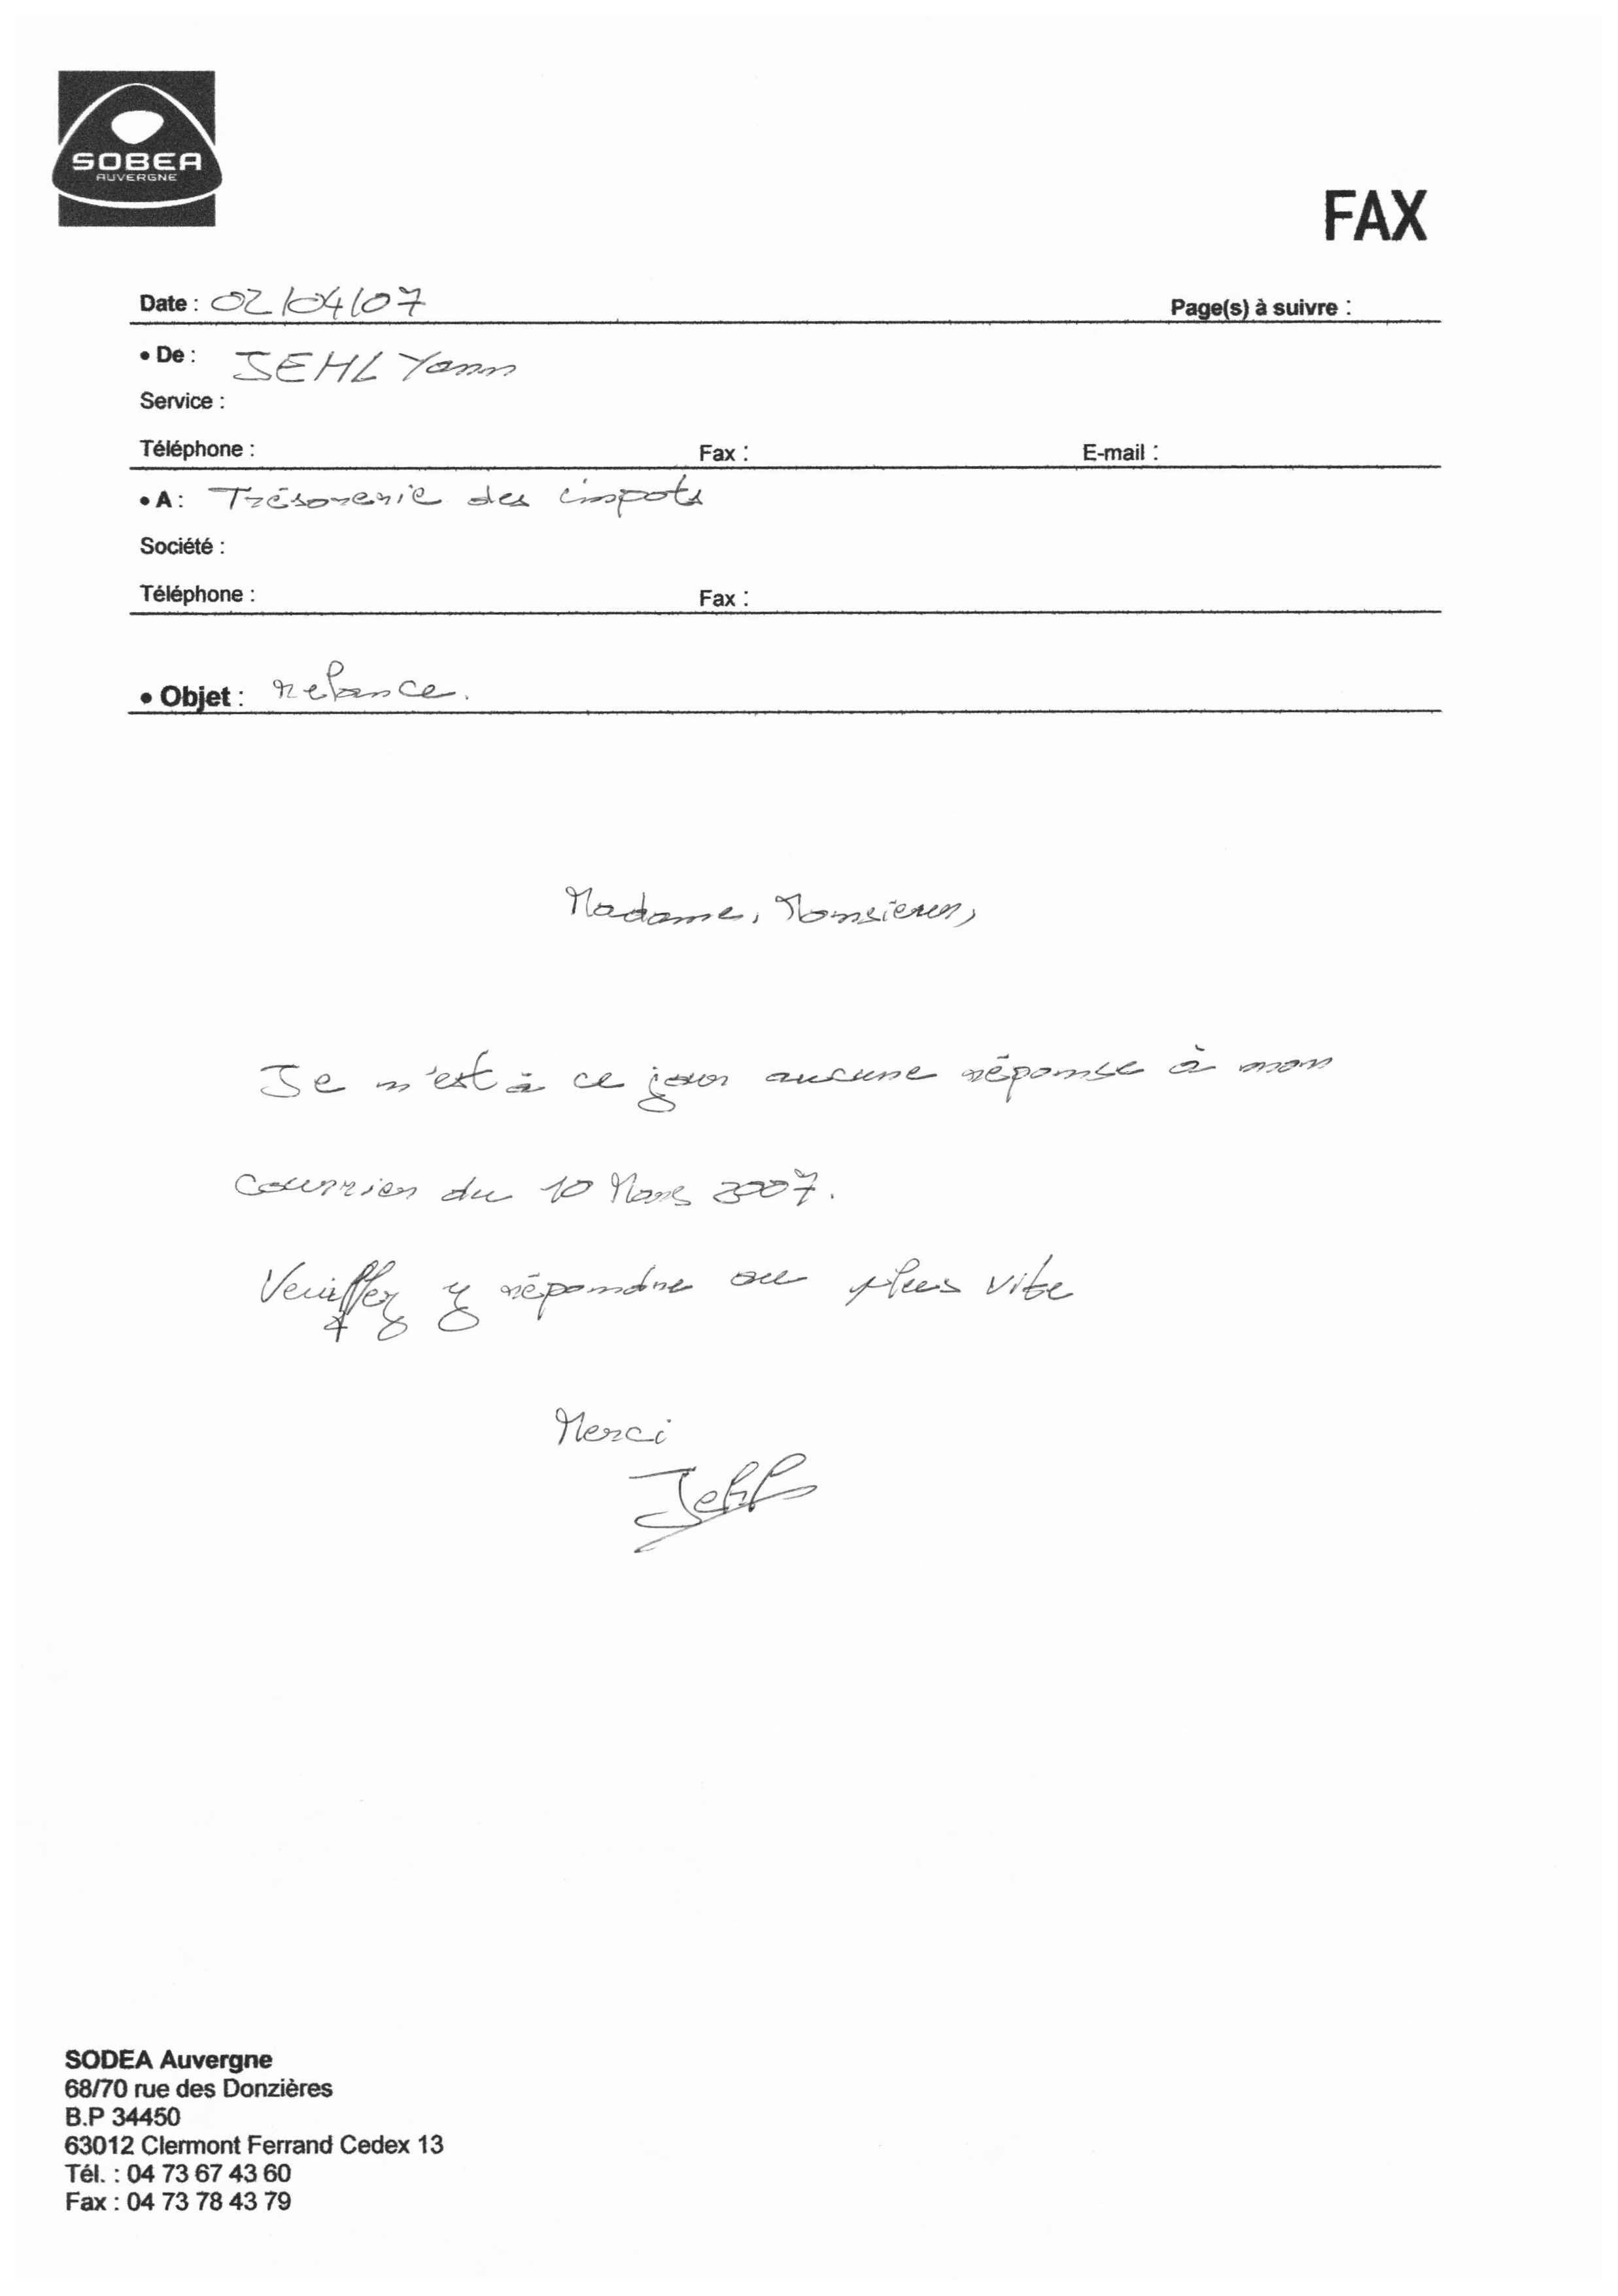 SOBEA
AUVERGNE
FAX
Date : 02/04/07
Page(s) à suivre :
• De : JEHL Yann
Service :
Téléphone : Fax : E-mail :
• A : Trésorerie des impots
Société :
Téléphone : Fax :
• Objet : relance.
Madame, Monsieur,
Je n'est à ce jour aucune réponse à mon
courrier du 10 Mars 2007.
Veuillez y répondre au plus vite
Merci
Jehl
SODEA Auvergne
68/70 rue des Donzières
B.P 34450
63012 Clermont Ferrand Cedex 13
Tél. : 04 73 67 43 60
Fax : 04 73 78 43 79